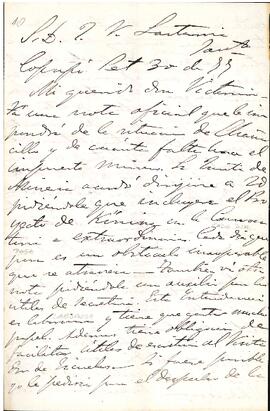 10
S. D. J. V. Lastarria
Copiapó Set 30 de 88
Mi querido don Victorino
Va una nota oficial que le impondrá
de la situacion de Chañarcillo
y de cuanta falta hace el
impuesto minero. La Junta de
Minería acordó dirigirse a Ud
pidiéndole que incluyera el Proyecto
de König en la Convocatoria
a extraordinarias. Cada dia que
pasa es un obstáculo insuperable
que se atraviesa — Tambien vá otra
nota pidiéndole un auxilio para los
útiles de secretaría. Esta Intendencia
es laboriosa y tiene que gastar mucho
papel. Ademas tiene obligacion de
facilitar útiles de escritorio al Visitador
de Escuelas. Si fuera posible
yo le pediría que el despacho de la